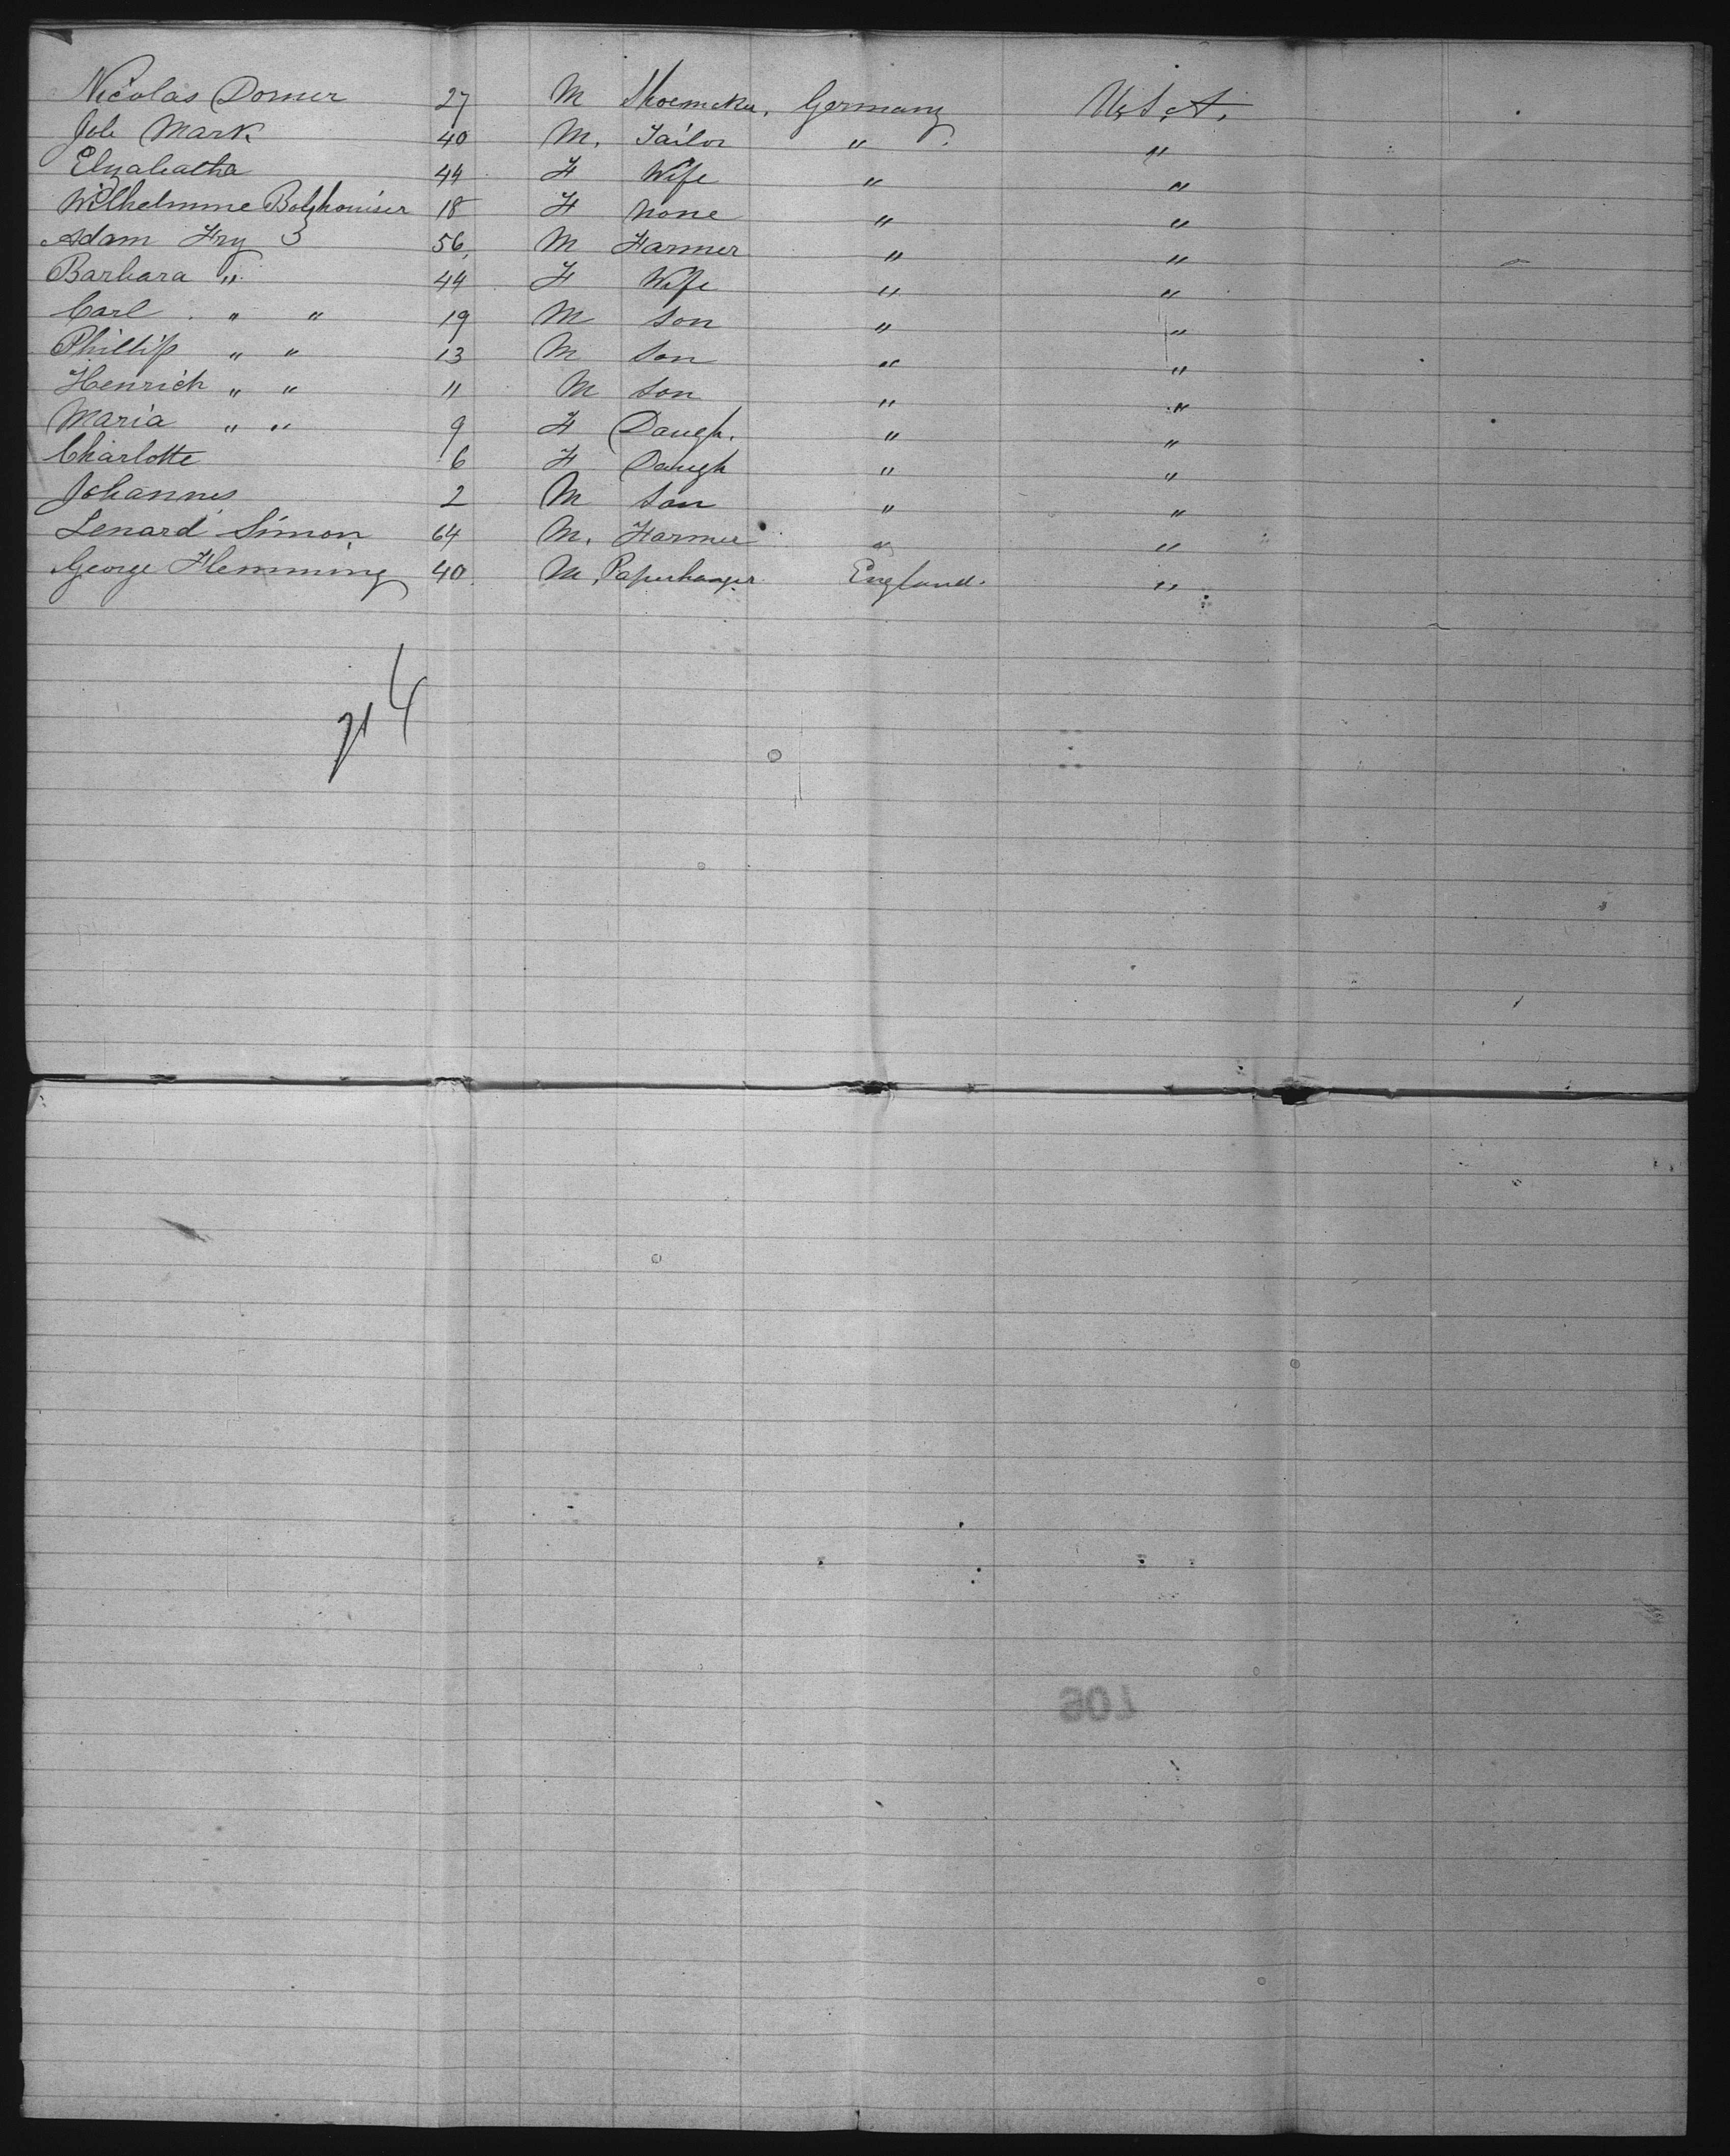 Nicolas Dorner 27 M Shoemaker, Germany U.S.A.
Job Mark 40 M. Tailor " "
Elyabatha 44 F Wife " "
Wilhelmine 18 F None " "
Adam Fry 56, M Farmer " "
Barbara " 44 F Wife " "
Carl " " 19 M Son " "
Phillip " " 13 M Son " "
Henrich " " 11 M Son " "
Maria " " 9 F Daugh. " "
Charlotte 6 F Daugh " "
Johannes 2 M Son " "
Lenard Simon 64 M. Farmer " "
George Flemming 40 M. Paperhanger England. "